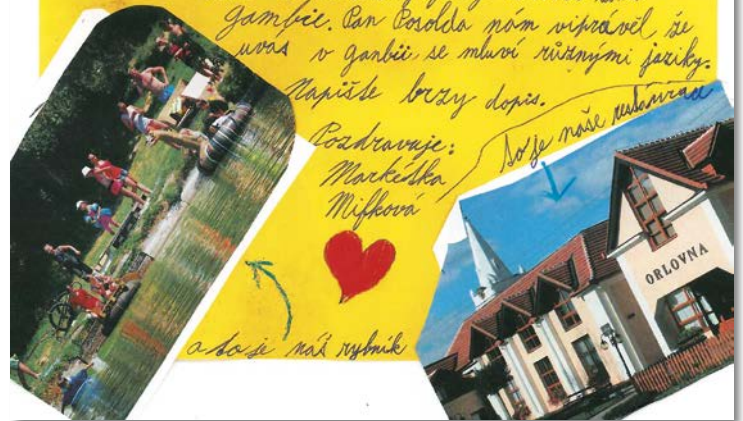 gambie. Pan Posolda nám viprávěl že
uvás v ganbii se mluví různými jaziky.
Napište brzy dopis.
Pozdravuje:
Markétka
Mifková
to je naše
ORLOVNA
a to je náš rybník